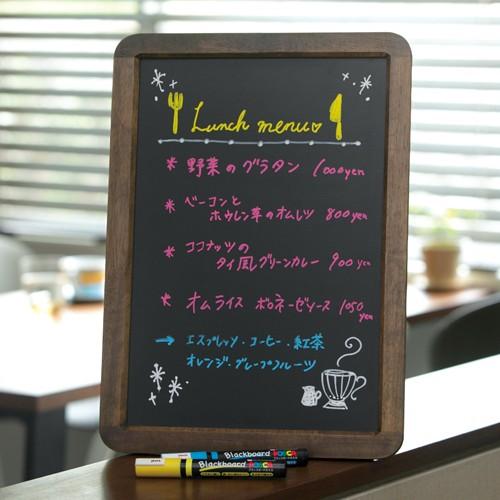 Lunch menu♡
* 野菜のグラタン 1000yen
* ベーコンと
ホウレン草のオムレツ 800yen
* ココナッツの
タイ風グリーンカレー 900yen
* オムライス ボロネーゼソース 1050
yen
→ エスプレッソ・コーヒー・紅茶
オレンジ・グレープフルーツ
Blackboard POSCA
Blackboard POSCA